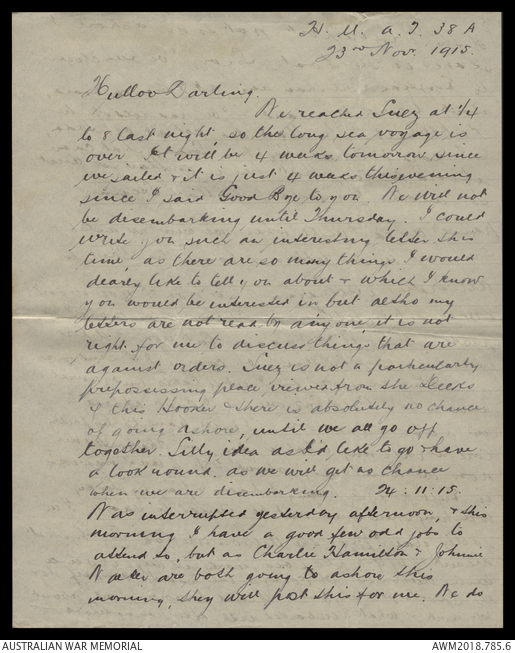 H. M. A. T. 38 A
23rd Nov. 1915.
Hulloo Darling.
We reached Suez at 1/4
to 8 last night, so the long sea voyage is
over. It will be 4 weeks tomorrow since
we sailed & it is just 4 weeks this evening
since I said Good Bye to you. We will not
be disembarking until Thursday. I could
write you such an interesting letter this
time, as there are so many things I would
dearly like to tell you about & which I know
you would be interested in but altho my
letters are not read by anyone, it is not
right for me to discuss things that are
against orders. Suez is not a particularly
prepossessing place, viewed from the Decks
of this Hooker & there is absolutely no chance
of going ashore, until we all go off
together. Silly idea as I'd like to go & have
a look round. as we will get no chance
when we are disembarking. 24.11.15.
Was interrupted yesterday afternoon, & this
morning I have a good few odd jobs to
attend to, but as Charlie Hamilton & Johnnie
are both going to ashore this
morning, they will post this for me. We do
AUSTRALIAN WAR MEMORIAL
AWM2018.785.6